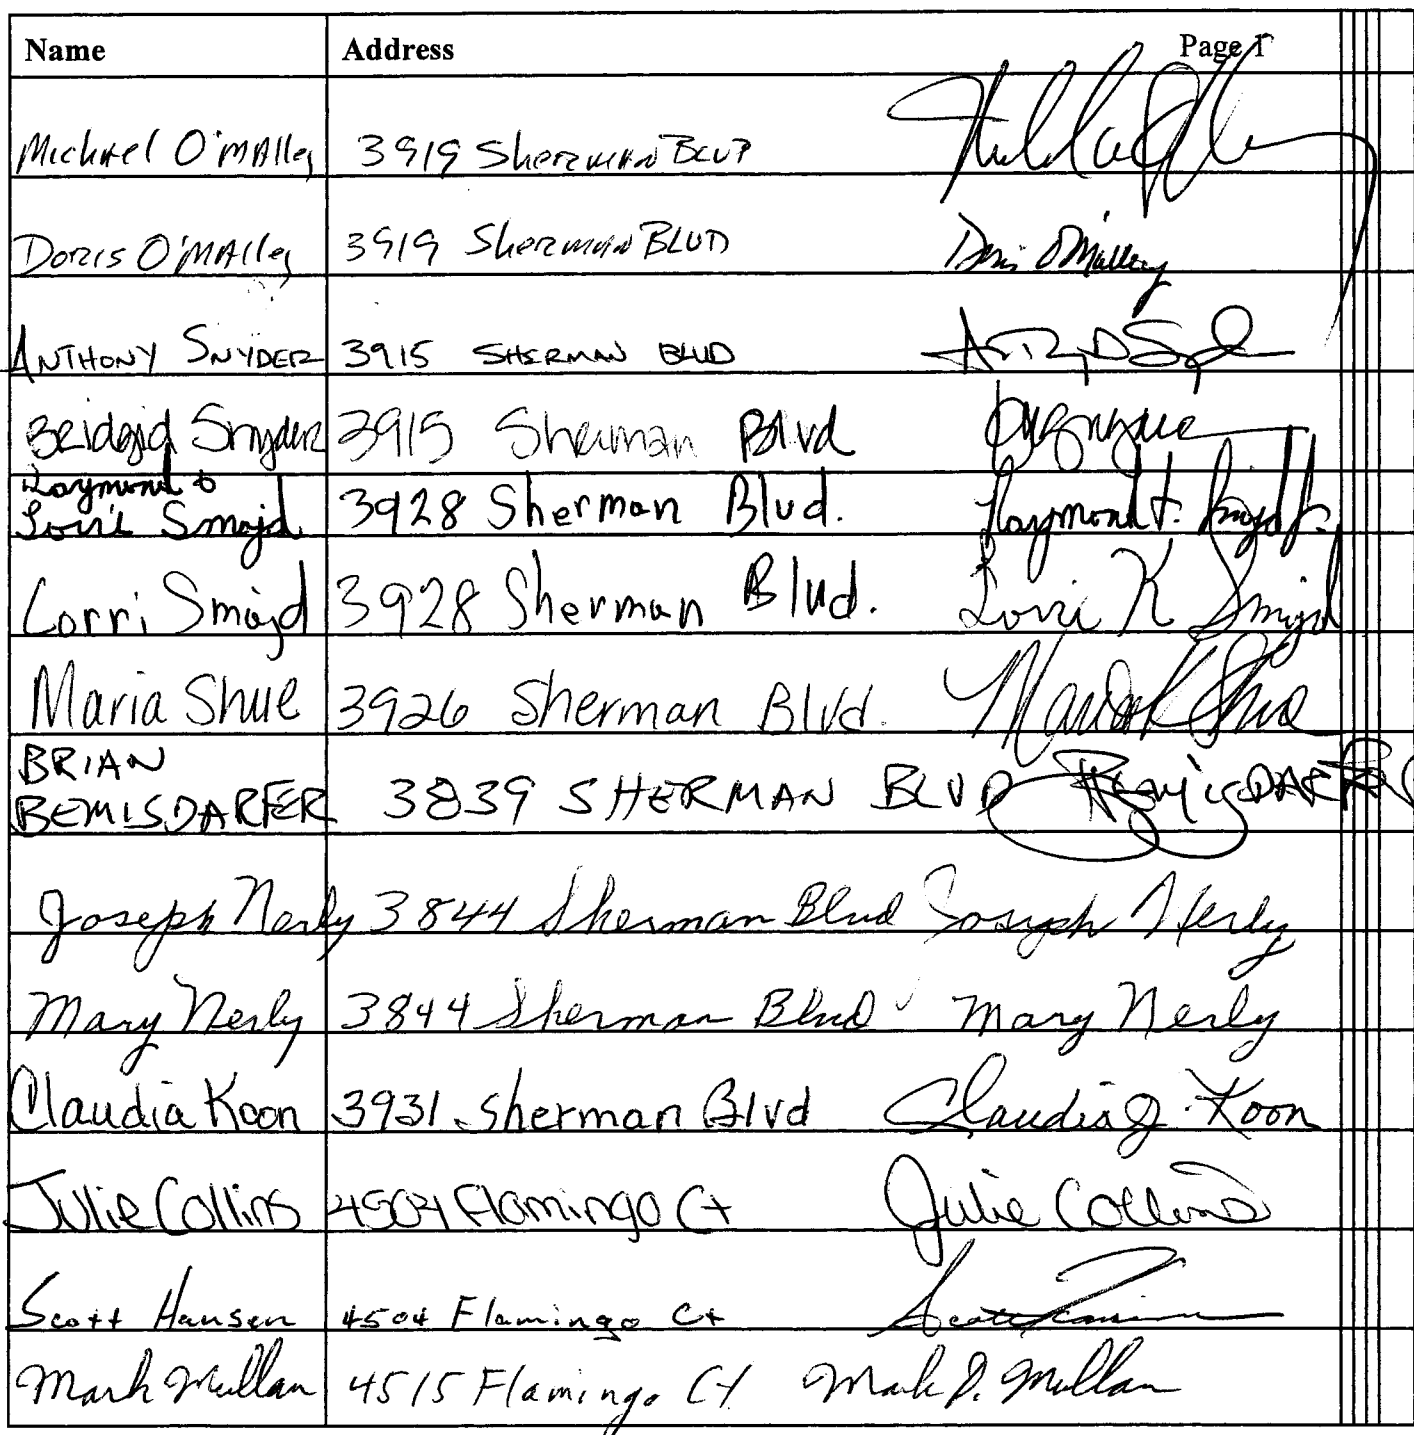 Name Address Page 1
Michael O'Malley 3919 Sherman Blvd
Doris O'Malley 3919 Sherman BLVD Doris O'Malley
ANTHONY SNYDER 3915 SHERMAN BLVD
Bridgid Snyder 3915 Sherman Blvd
Raymond &
Lorri Smajd 3928 Sherman Blvd. Raymond F. Smajd Jr.
Lorri Smajd 3928 Sherman Blvd. Lorri K Smajd
Maria Shue 3926 Sherman Blvd. Maria K Shue
BRIAN
BEMISDARFER 3839 SHERMAN BLVD BEMISDARFER
Joseph Nerly 3844 Sherman Blvd Joseph Nerly
Mary Nerly 3844 Sherman Blvd Mary Nerly
Claudia Koon 3931 Sherman Blvd Claudia J. Koon
Julie Collins 4504 Flamingo Ct Julie Collins
Scott Hansen 4504 Flamingo Ct Scott Hansen
Mark Mullan 4515 Flamingo Ct Mark D. Mullan